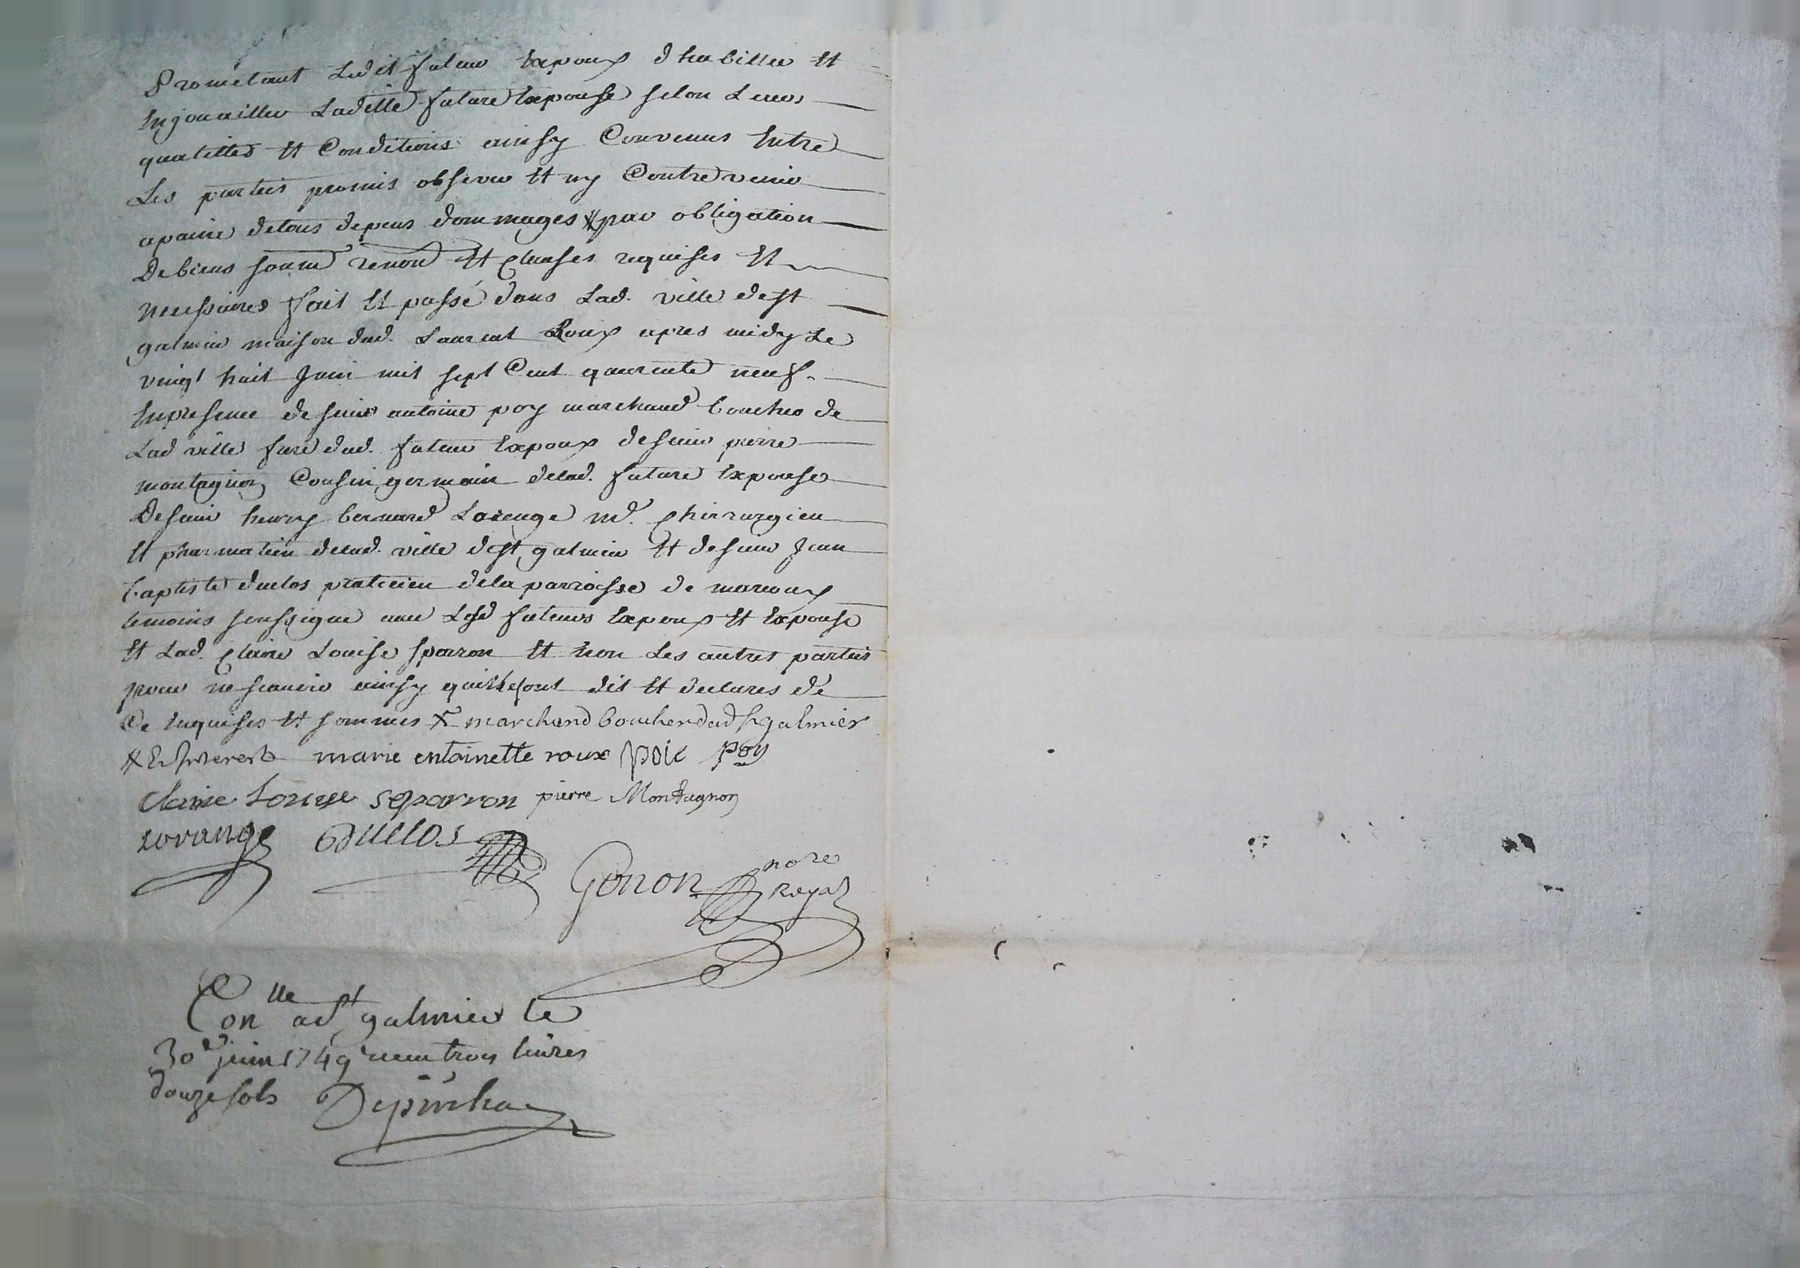 Prometant Ledit futur Expoux d habiller Et
Enjouailler Laditte future Expouse selon Leurs
qualittes Et Conditions ainsy Convenus Entre
Les parties promis observer Et ny Contrevenir
apaine detous depens dommages # par obligation
De biens soumd renond Et Clauses requises Et
necessaires fait Et passé dans Lad. ville de St
galmier maison dud. Laurent Roux apres midy Le
vingt huit Juin mil sept Cent quarente neuf.
En presence de sieur antoine poy marchand boucher de
Lad ville frere dud. futur Expoux de sieur pierre
montagnon Cousin germain delad. future Expouse
De sieur henry bernard Lorenge md. Chirurgien
Et pharmatien delad. ville de St galmier Et de sieur Jean
baptiste duclos praticien dela parroisse de
temoins soussigne avec Lesd futurs Expoux Et Expouse
Et Lad. Claire Louise sparron Et non Les autres parties
pour ne scavoir ainsy quils Lont dit Et declares de
Ce Enquises Et sommes X marchand boucher dud St galmier
# Et Interest marie entoinette roux poic poy
Claire Louise Sparron pierre Montagnon
Lorange Duclos
Gonon nore
Royal
Conlle a St galmier le
30e juin 1749 receu trois livres
douze sols